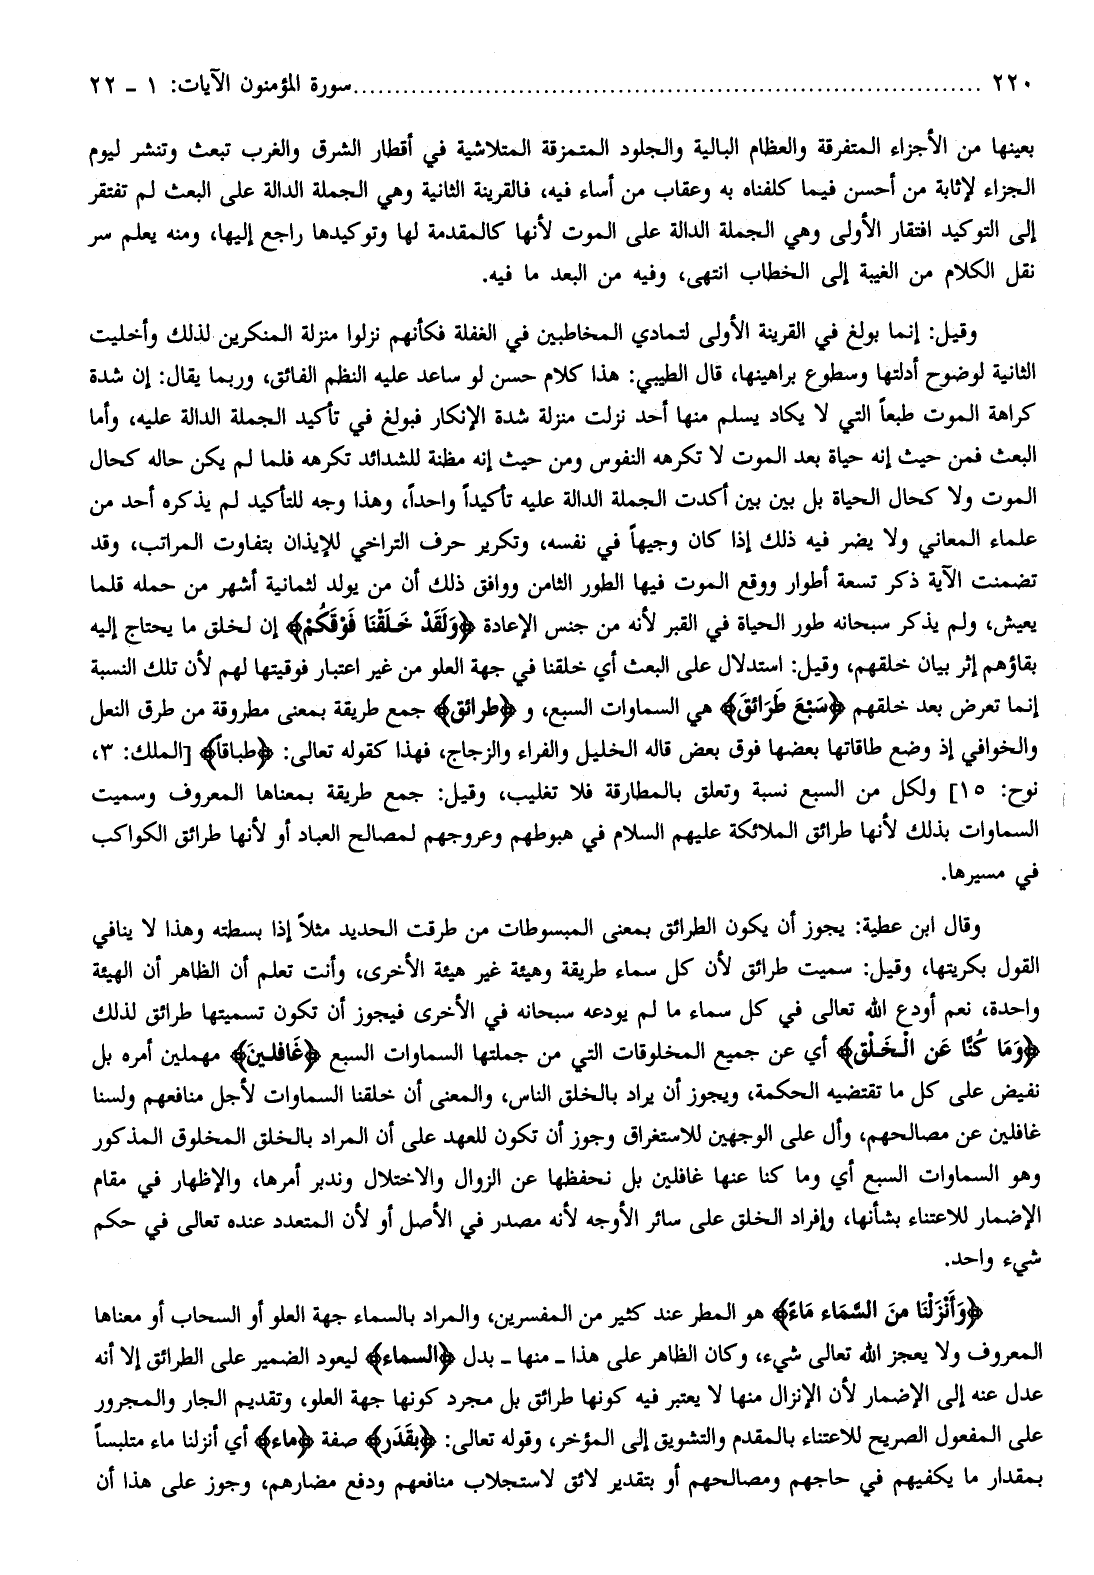 ٢٢٠ ........................................................................... سورة المؤمنون الآيات: ١ - ٢٢
بعينها من الأجزاء المتفرقة والعظام البالية والجلود المتمزقة المتلاشية في أقطار الشرق والغرب تبعث وتنشر ليوم
الجزاء لإثابة من أحسن فيما كلفناه به وعقاب من أساء فيه، فالقرينة الثانية وهي الجملة الدالة على البعث لم تفتقر
إلى التوكيد افتقار الأولى وهي الجملة الدالة على الموت لأنها كالمقدمة لها وتوكيدها راجع إليها، ومنه يعلم سر
نقل الكلام من الغيبة إلى الخطاب انتهى، وفيه من البعد ما فيه.
وقيل: إنما بولغ في القرينة الأولى لتمادي المخاطبين في الغفلة فكأنهم نزلوا منزلة المنكرين لذلك وأخليت
الثانية لوضوح أدلتها وسطوع براهينها، قال الطيبي: هذا كلام حسن لو ساعد عليه النظم الفائق، وربما يقال: إن شدة
كراهة الموت طبعاً التي لا يكاد يسلم منها أحد نزلت منزلة شدة الإنكار فبولغ في تأكيد الجملة الدالة عليه، وأما
البعث فمن حيث إنه حياة بعد الموت لا تكرهه النفوس ومن حيث إنه مظنة للشدائد تكرهه فلما لم يكن حاله كحال
الموت ولا كحال الحياة بل بين بين أكدت الجملة الدالة عليه تأكيداً واحداً، وهذا وجه للتأكيد لم يذكره أحد من
علماء المعاني ولا يضر فيه ذلك إذا كان وجيهاً في نفسه، وتكرير حرف التراخي للإيذان بتفاوت المراتب، وقد
تضمنت الآية ذكر تسعة أطوار ووقع الموت فيها الطور الثامن ووافق ذلك أن من يولد لثمانية أشهر من حمله قلما
يعيش، ولم يذكر سبحانه طور الحياة في القبر لأنه من جنس الإعادة ﴿وَلَقَدْ خَلَقْنَا فَوْقَكُمْ﴾ إن لخلق ما يحتاج إليه
بقاؤهم إثر بيان خلقهم، وقيل: استدلال على البعث أي خلقنا في جهة العلو من غير اعتبار فوقيتها لهم لأن تلك النسبة
إنما تعرض بعد خلقهم ﴿سَبْعَ طَرَائقَ﴾ هي السماوات السبع، و ﴿طرائق﴾ جمع طريقة بمعنى مطروقة من طرق النعل
والخوافي إذ وضع طاقاتها بعضها فوق بعض قاله الخليل والفراء والزجاج، فهذا كقوله تعالى: ﴿طباقا﴾ [الملك: ٣،
نوح: ١٥] ولكل من السبع نسبة وتعلق بالمطارقة فلا تغليب، وقيل: جمع طريقة بمعناها المعروف وسميت
السماوات بذلك لأنها طرائق الملائكة عليهم السلام في هبوطهم وعروجهم لمصالح العباد أو لأنها طرائق الكواكب
في مسيرها.
وقال ابن عطية: يجوز أن يكون الطرائق بمعنى المبسوطات من طرقت الحديد مثلاً إذا بسطته وهذا لا ينافي
القول بكريتها، وقيل: سميت طرائق لأن كل سماء طريقة وهيئة غير هيئة الأخرى، وأنت تعلم أن الظاهر أن الهيئة
واحدة، نعم أودع الله تعالى في كل سماء ما لم يودعه سبحانه في الأخرى فيجوز أن تكون تسميتها طرائق لذلك
﴿وَمَا كُنَّا عَن الْخَلْق﴾ أي عن جميع المخلوقات التي من جملتها السماوات السبع ﴿غَافلينَ﴾ مهملين أمره بل
نفيض على كل ما تقتضيه الحكمة، ويجوز أن يراد بالخلق الناس، والمعنى أن خلقنا السماوات لأجل منافعهم ولسنا
غافلين عن مصالحهم، وأل على الوجهين للاستغراق وجوز أن تكون للعهد على أن المراد بالخلق المخلوق المذكور
وهو السماوات السبع أي وما كنا عنها غافلين بل نحفظها عن الزوال والاختلال وندبر أمرها، والإظهار في مقام
الإضمار للاعتناء بشأنها، وإفراد الخلق على سائر الأوجه لأنه مصدر في الأصل أو لأن المتعدد عنده تعالى في حكم
شيء واحد.
﴿وَأَنْزَلْنَا منَ السَّمَاء مَاءً﴾ هو المطر عند كثير من المفسرين، والمراد بالسماء جهة العلو أو السحاب أو معناها
المعروف ولا يعجز الله تعالى شيء، وكان الظاهر على هذا ـ منها ـ بدل ﴿السماء﴾ ليعود الضمير على الطرائق إلا أنه
عدل عنه إلى الإضمار لأن الإنزال منها لا يعتبر فيه كونها طرائق بل مجرد كونها جهة العلو، وتقديم الجار والمجرور
على المفعول الصريح للاعتناء بالمقدم والتشويق إلى المؤخر، وقوله تعالى: ﴿بقَدَر﴾ صفة ﴿ماء﴾ أي أنزلنا ماء متلبساً
بمقدار ما يكفيهم في حاجهم ومصالحهم أو بتقدير لائق لاستجلاب منافعهم ودفع مضارهم، وجوز على هذا أن